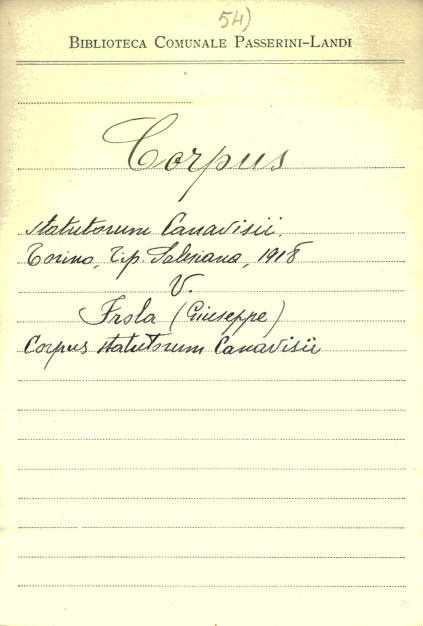 54)
BIBLIOTECA COMUNALE PASSERINI-LANDI
Corpus
statutorum Canavisii.
Torino, Tip. Salesiana, 1918
V.
Frola (Giuseppe)
Corpus statutorum Canavisii